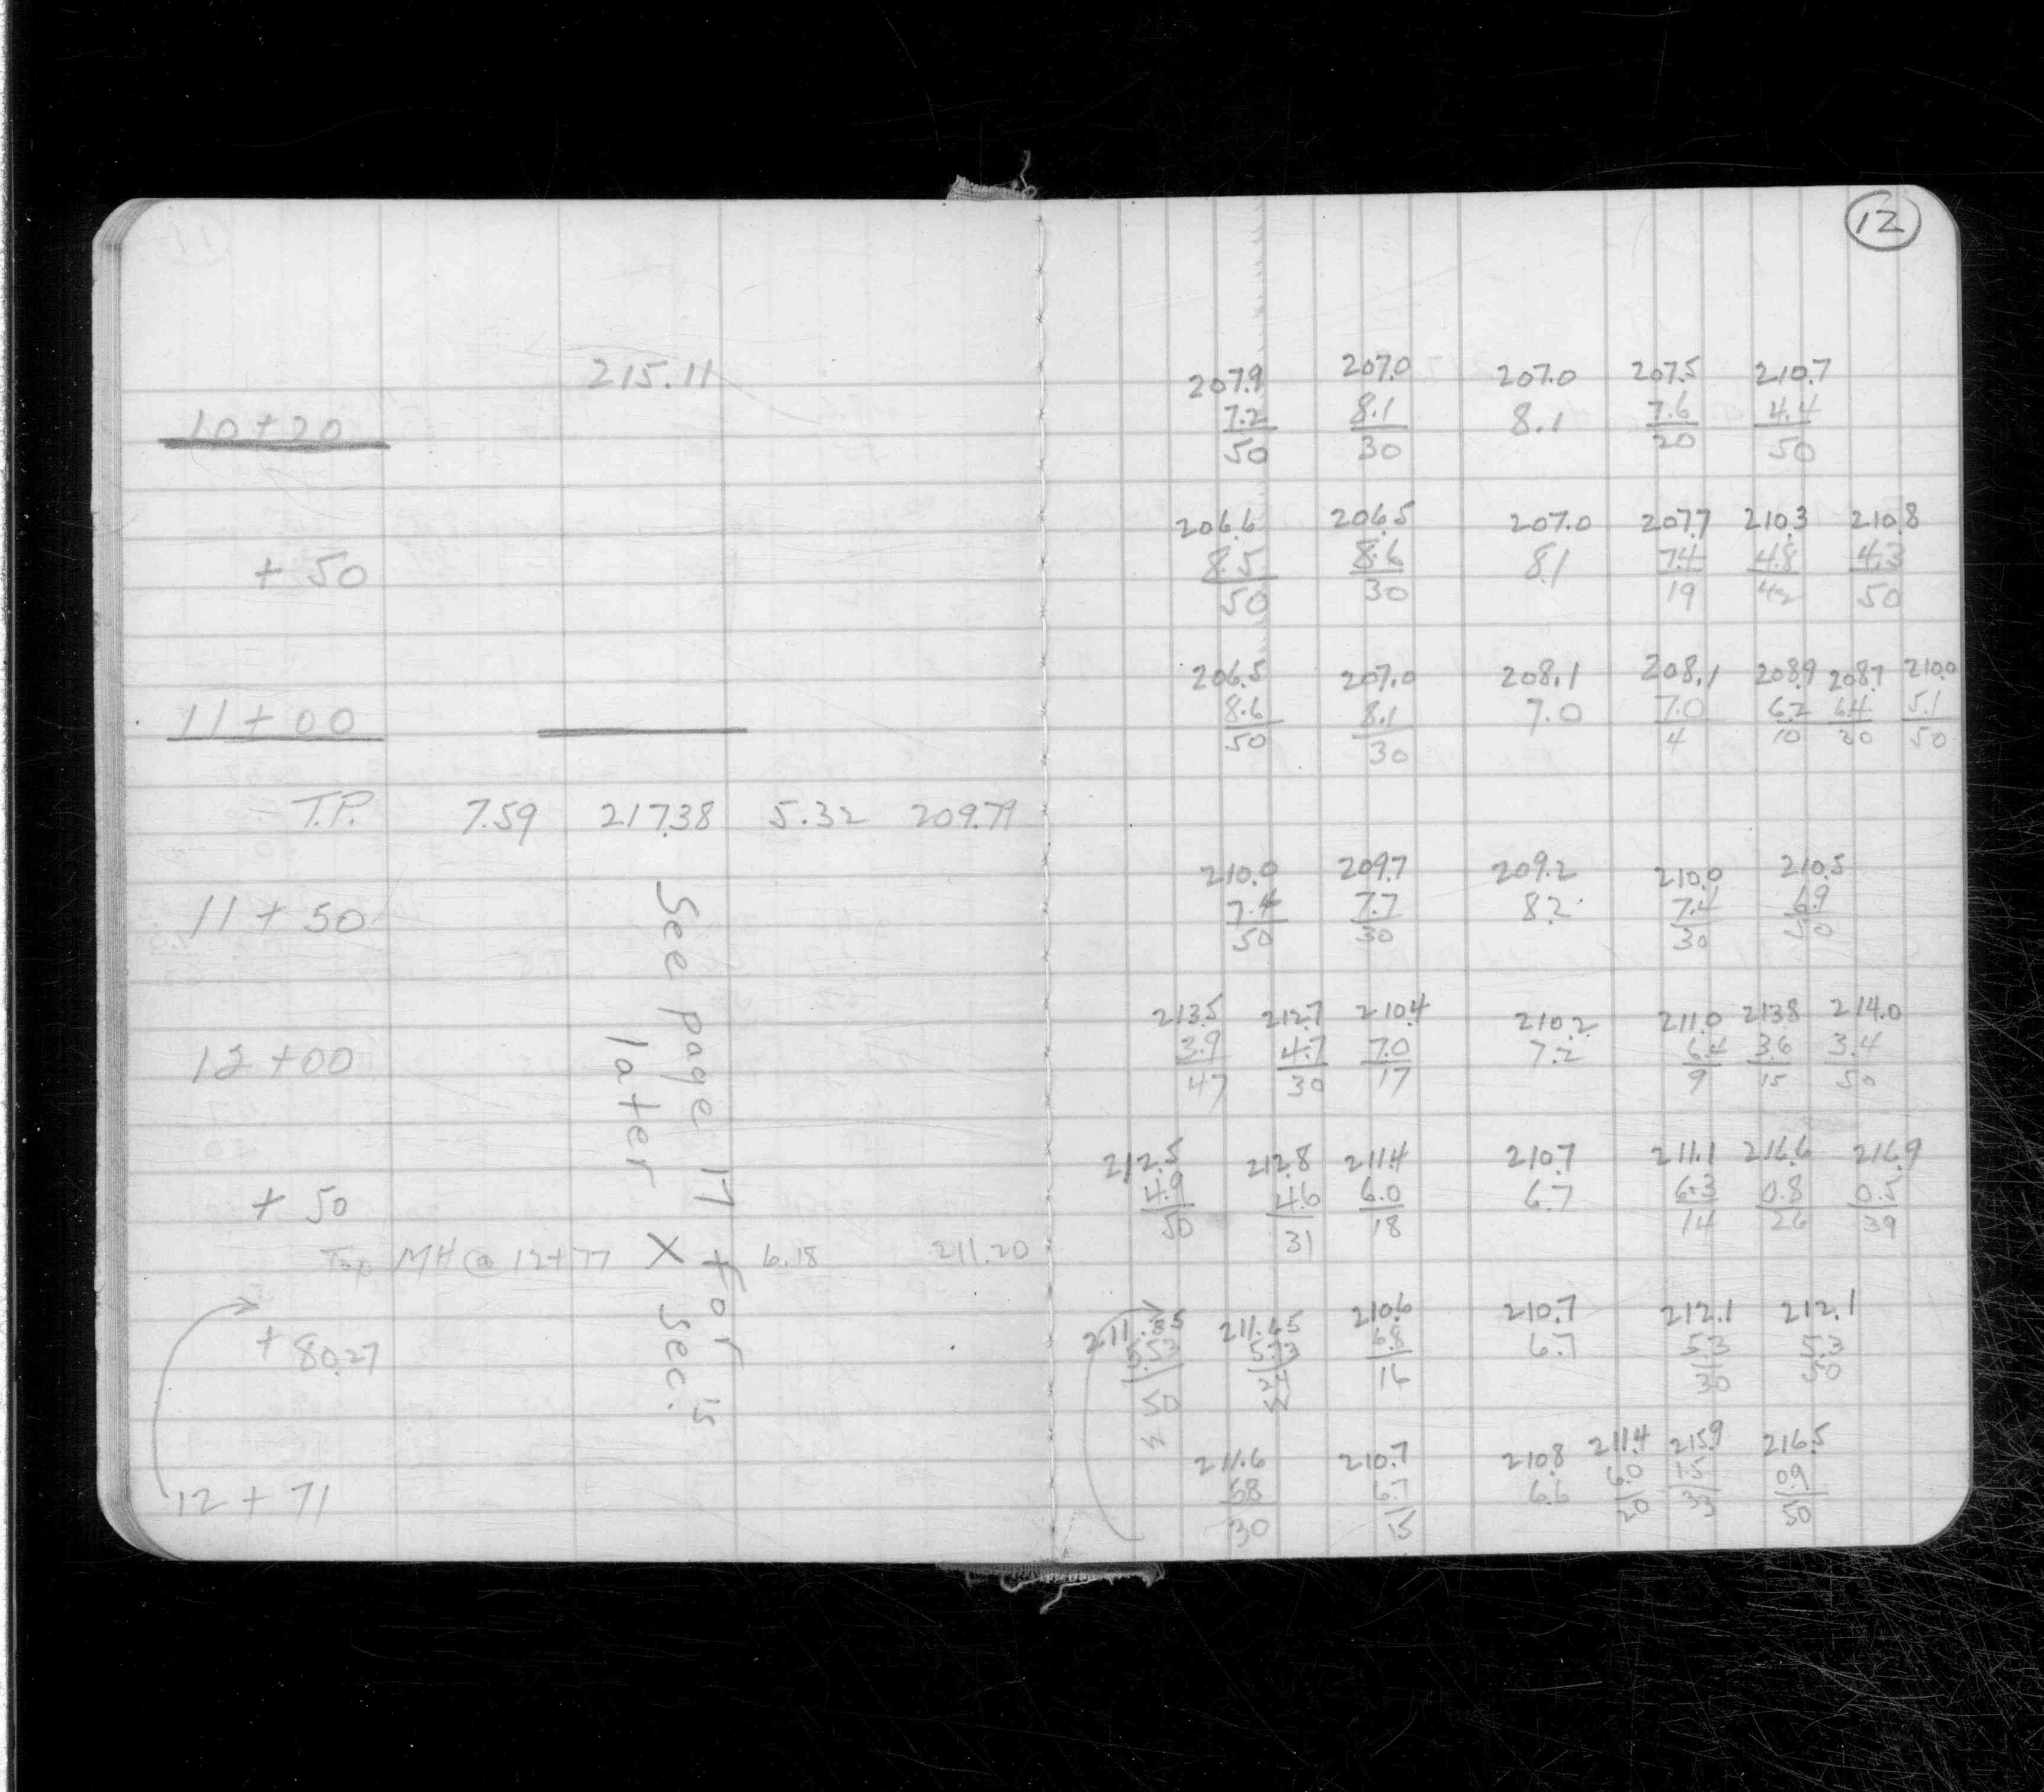 12
215.11
207.9 207.0 207.0 207.5 210.7
10+20 7.2 8.1 8.1 7.6 4.4
50 30 20 50
206.6 206.5 207.0 207.7 210.3 210.8
+ 50 8.5 8.6 8.1 7.4 4.8 4.3
50 30 19 42 50
206.5 207.0 208.1 208.1 208.9 208.7 210.0
11+00 8.6 8.1 7.0 7.0 6.2 6.4 5.1
50 30 4 10 30 50
T.P. 7.59 217.38 5.32 209.79
210.0 209.7 209.2 210.0 210.5
11+50 7.4 7.7 8.2 7.4 6.9
50 30 30 50
See page 17 for is
later X Sec.
213.5 212.7 210.4 210.2 211.0 213.8 214.0
12+00 3.9 4.7 7.0 7.2 6.4 3.6 3.4
47 30 17 9 15 50
212.5 212.8 211.4 210.7 211.1 216.6 216.9
+ 50 4.9 4.6 6.0 6.7 6.3 0.8 0.5
50 31 18 14 26 39
Top MH @ 12+77 6.18 211.20
211.85 211.65 210.6 210.7 212.1 212.1
+ 80.27 5.53 5.73 6.8 6.7 5.3 5.3
50 16 30 50
211.6 210.7 210.8 211.4 215.9 216.5
12 + 71 5.8 6.7 6.6 6.0 1.5 0.9
30 15 20 33 50